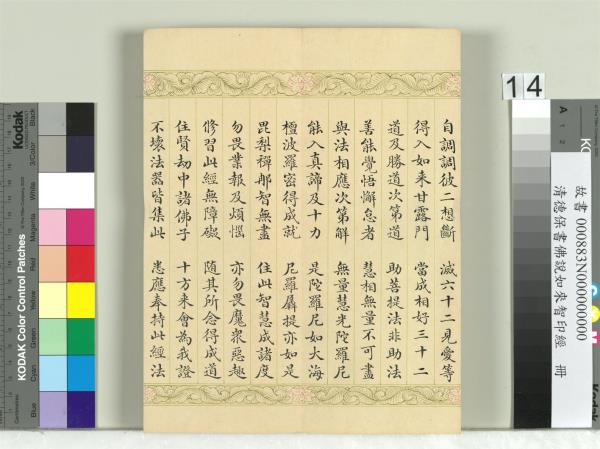 自調調彼二想斷 滅六十二見愛等
得入如来甘露門 當成相好三十二
道及勝道次第道 助菩提法非助法
善能覺悟懈怠者 慧相無量不可盡
與法相應次第解 無量慧光陀羅尼
能入真諦及十力 是陀羅尼如大海
檀波羅密得成就 尼羅羼提亦如是
毘梨禪那智無盡 住此智慧成諸度
勿畏業報及煩惱 亦勿畏魔衆惡趣
修習此經無障礙 隨其所念得成道
住賢劫中諸佛子 十方来會為我證
不壞法器皆集此 悉應奉持此經法
14
故書 000883N000000000
清德保書佛說如來智印經 冊
Kodak
KODAK Color Control Patches
Blue
Cyan
Green
Yellow
Red
Magenta
White
3/Color
Black
A 1 2